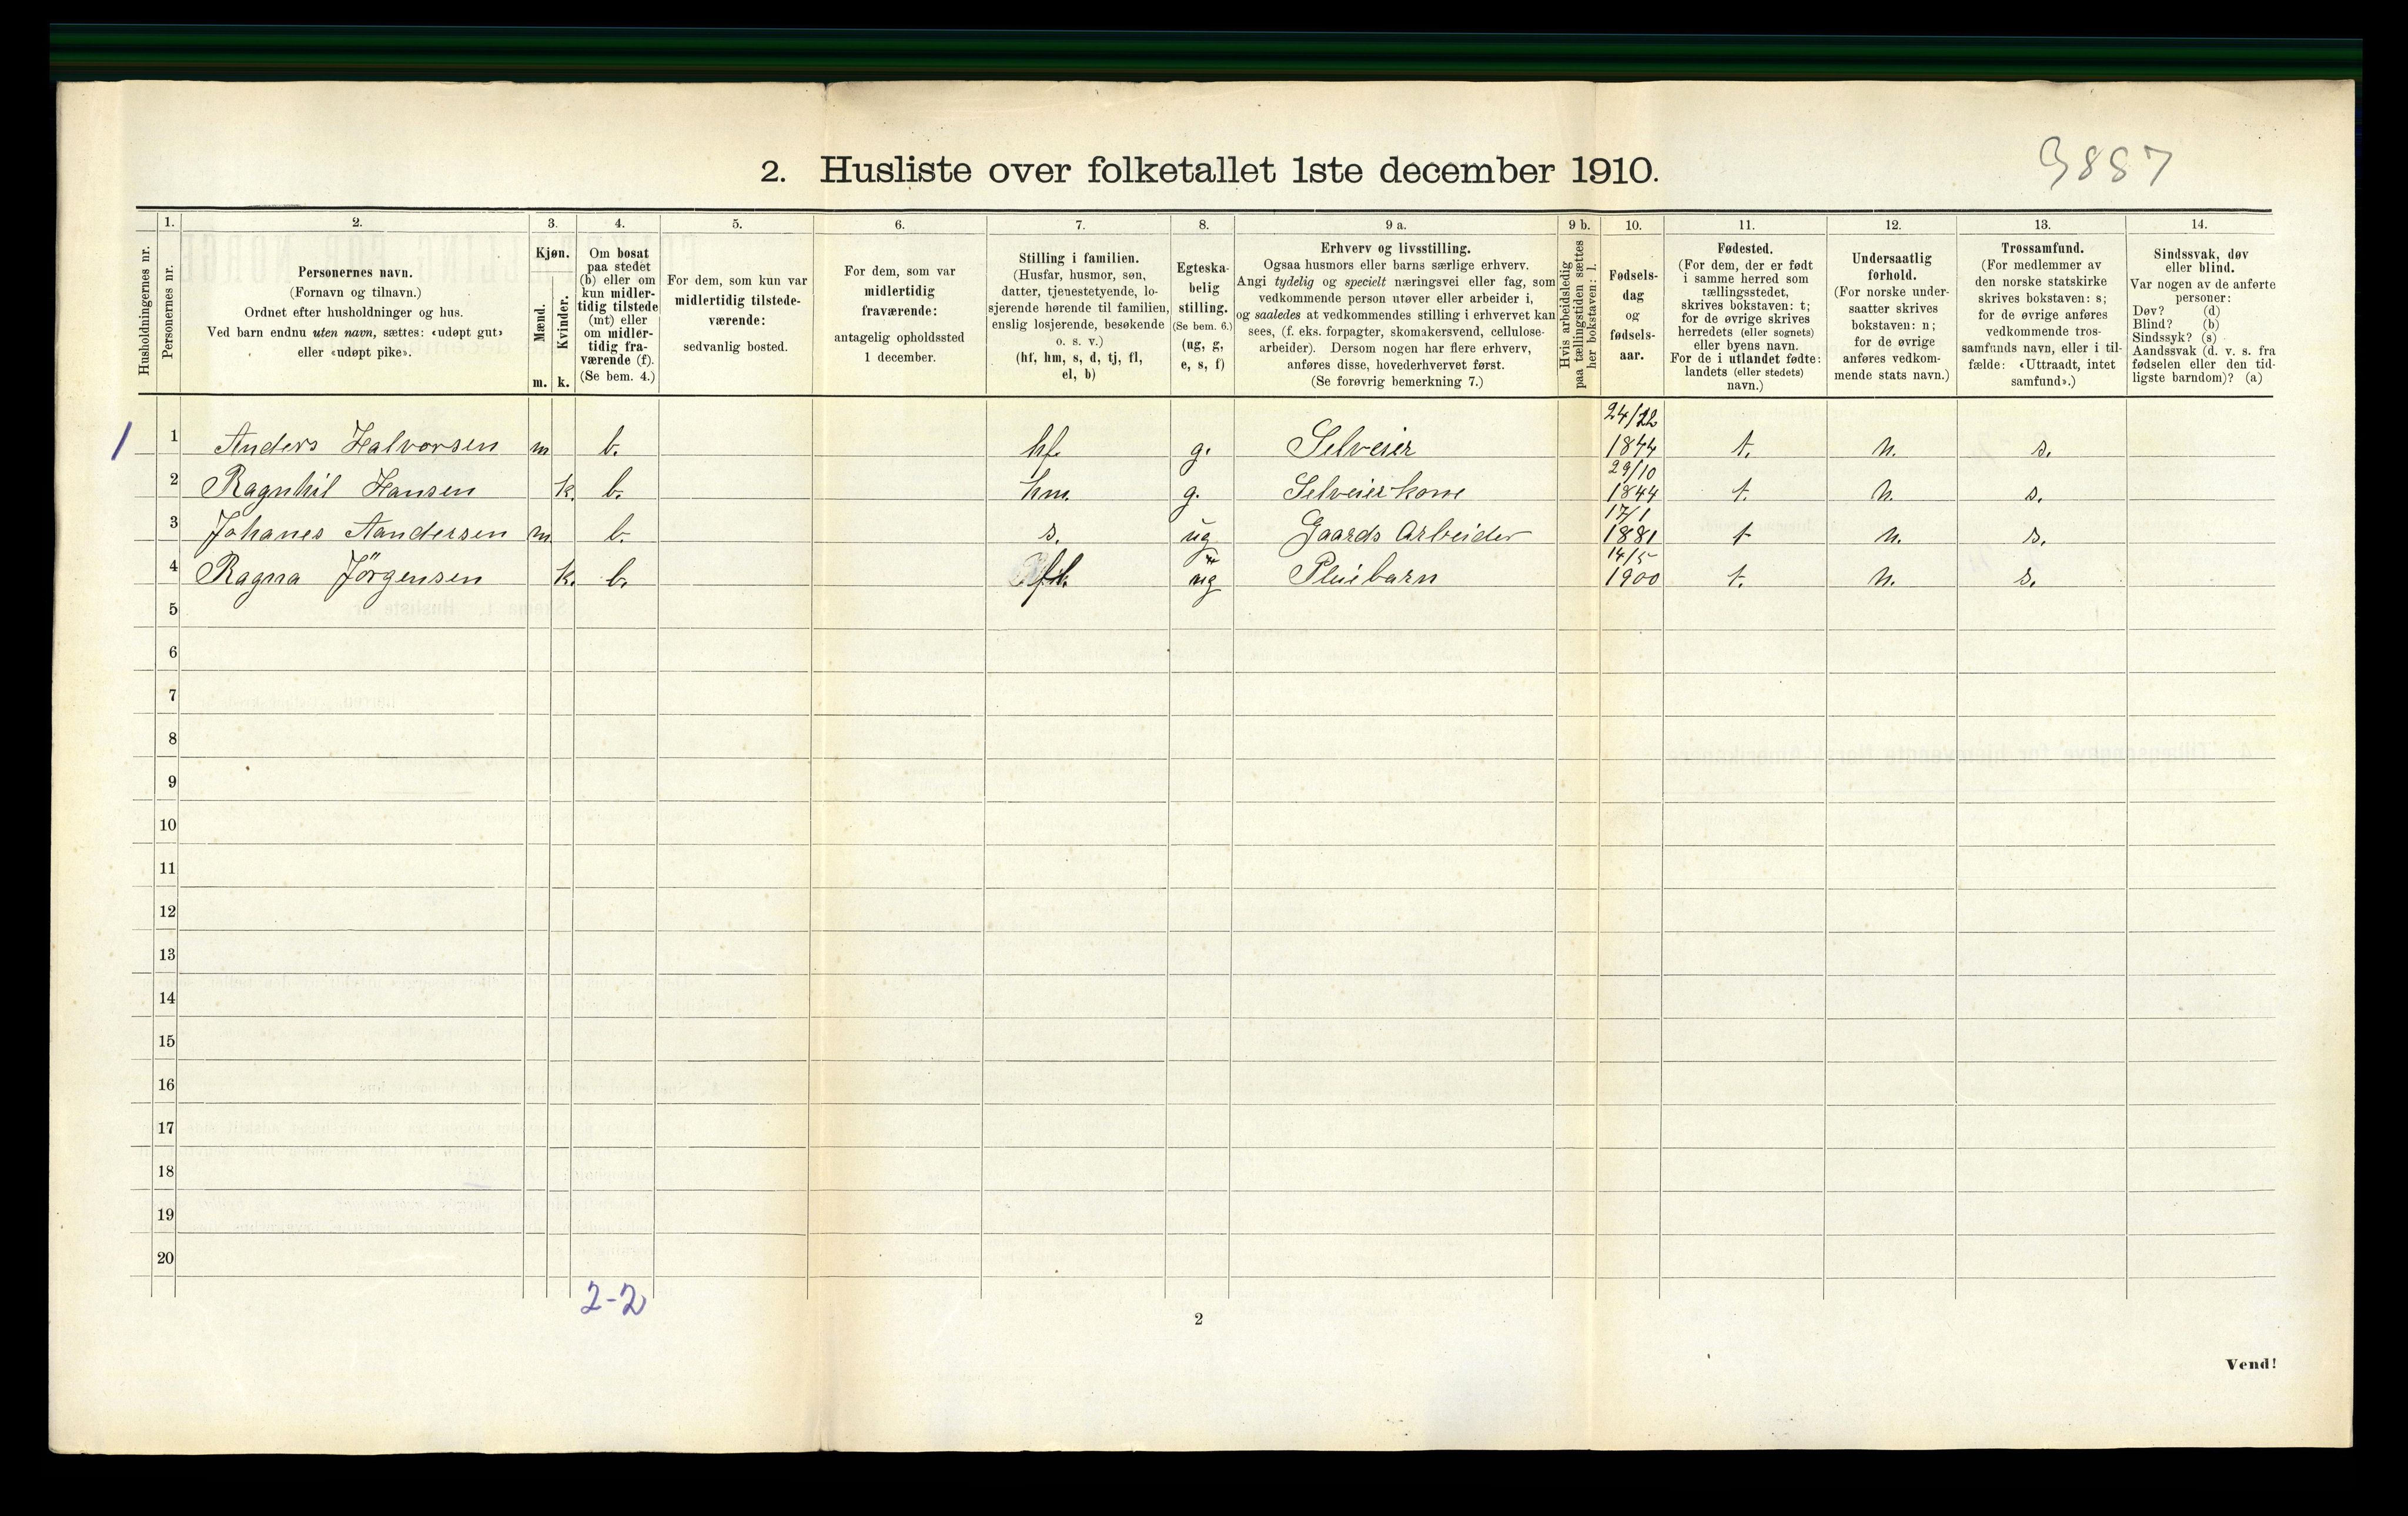 3887
2. Husliste over folketallet 1ste december 1910.
Husholdningernes nr.
1.
Personernes nr.
2.
Personernes navn.
(Fornavn og tilnavn.)
Ordnet efter husholdninger og hus.
Ved barn endnu uten navn, sættes: «udøpt gut»
eller «udøpt pike».
3.
Kjøn.
Mænd.
Kvinder.
m. k.
4.
Om bosat
paa stedet
(b) eller om
kun midler-
tidig tilstede
(mt) eller
om midler-
tidig fra-
værende (f).
(Se bem. 4.)
5.
For dem, som kun var
midlertidig tilstede-
værende:
sedvanlig bosted.
6.
For dem, som var
midlertidig
fraværende:
antagelig opholdssted
1 december.
7.
Stilling i familien.
(Husfar, husmor, søn,
datter, tjenestetyende, lo-
sjerende hørende til familien,
enslig losjerende, besøkende
o. s. v.)
(hf, hm, s, d, tj, fl,
el, b)
8.
Egteska-
belig
stilling.
(Se bem. 6.)
(ug, g,
e, s, f)
9 a.
Erhverv og livsstilling.
Ogsaa husmors eller barns særlige erhverv.
Angi tydelig og specielt næringsvei eller fag, som
vedkommende person utøver eller arbeider i,
og saaledes at vedkommendes stilling i erhvervet kan
sees, (f. eks. forpagter, skomakersvend, cellulose-
arbeider). Dersom nogen har flere erhverv,
anføres disse, hovederhvervet først.
(Se forøvrig bemerkning 7.)
9 b.
Hvis arbeidsledig
paa tællingstiden sættes
her bokstaven: l.
10.
Fødsels-
dag
og
fødsels-
aar.
11.
Fødested.
(For dem, der er født
i samme herred som
tællingsstedet,
skrives bokstaven: t;
for de øvrige skrives
herredets (eller sognets)
eller byens navn.
For de i utlandet fødte:
landets (eller stedets)
navn.)
12.
Undersaatlig
forhold.
(For norske under-
saatter skrives
bokstaven: n;
for de øvrige
anføres vedkom-
mende stats navn.)
13.
Trossamfund.
(For medlemmer av
den norske statskirke
skrives bokstaven: s;
for de øvrige anføres
vedkommende tros-
samfunds navn, eller i til-
fælde: «Uttraadt, intet
samfund».)
14.
Sindssvak, døv
eller blind.
Var nogen av de anførte
personer:
Døv? (d)
Blind? (b)
Sindssyk? (s)
Aandssvak (d. v. s. fra
fødselen eller den tid-
ligste barndom)? (a)
1 1 Anders Halvorsen m b. hf. g. Selveier 1844 t. n. s.
2 Ragnhil Hansen k. b. hm. g. Selveierkone 29/10 1844 t. n. s.
3 Johanes Aandersen m b. s. ug Gaards Arbeider 17/1 1881 t n. s.
4 Ragna Jörgensen k. b. ug Pleibarn 14/5 1900 t. n. s.
5
6
7
8
9
10
11
12
13
14
15
16
17
18
19
20
2-2
2
Vend!